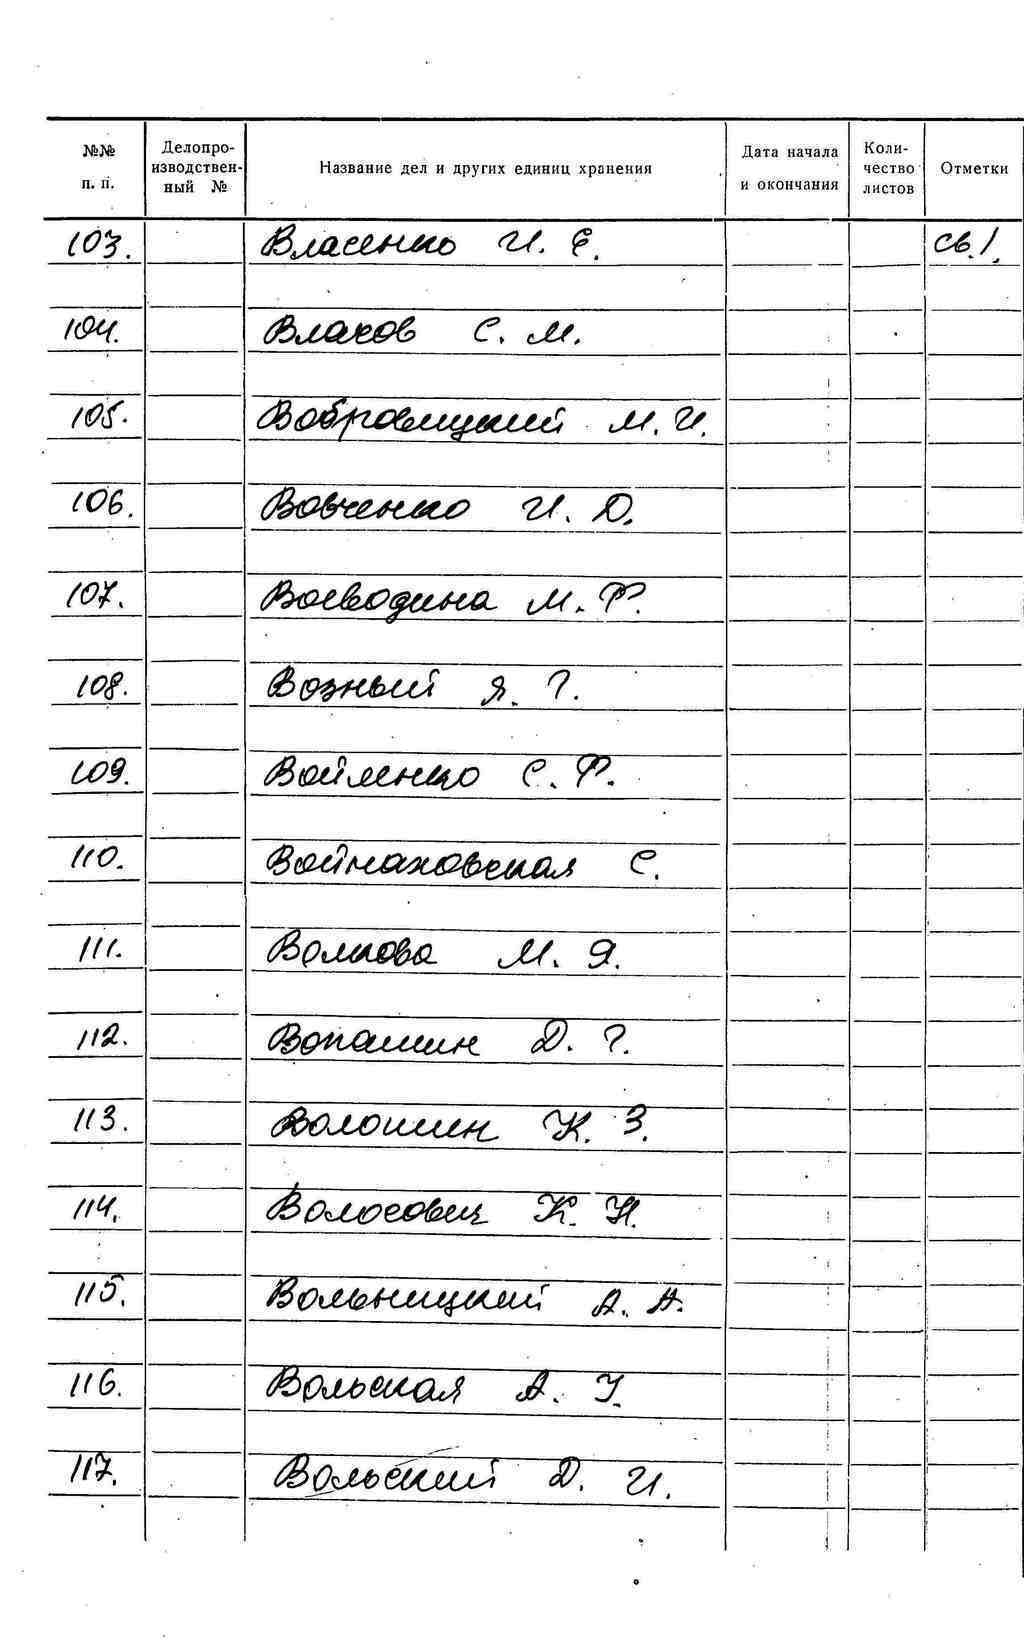 №№ п. п. Делопроизводственный № Название дел и других единиц хранения Дата начала и окончания Количество листов Отметки
103. Власенко И. Е. св. 1.
104. Влахов С. М.
105. Вобровицкий М. И.
106. Вовченко И. Д.
107. Воеводина М. Ф.
108. Возный Я. Г.
109. Войленко С. Ф.
110. Войнаховская С.
111. Волкова М. Я.
112. Вопашин Д. Г.
113. Волошин К. З.
114. Волосович К. Н.
115. Вольницкий А. А.
116. Вольская А. У.
117. Вольский Д. И.